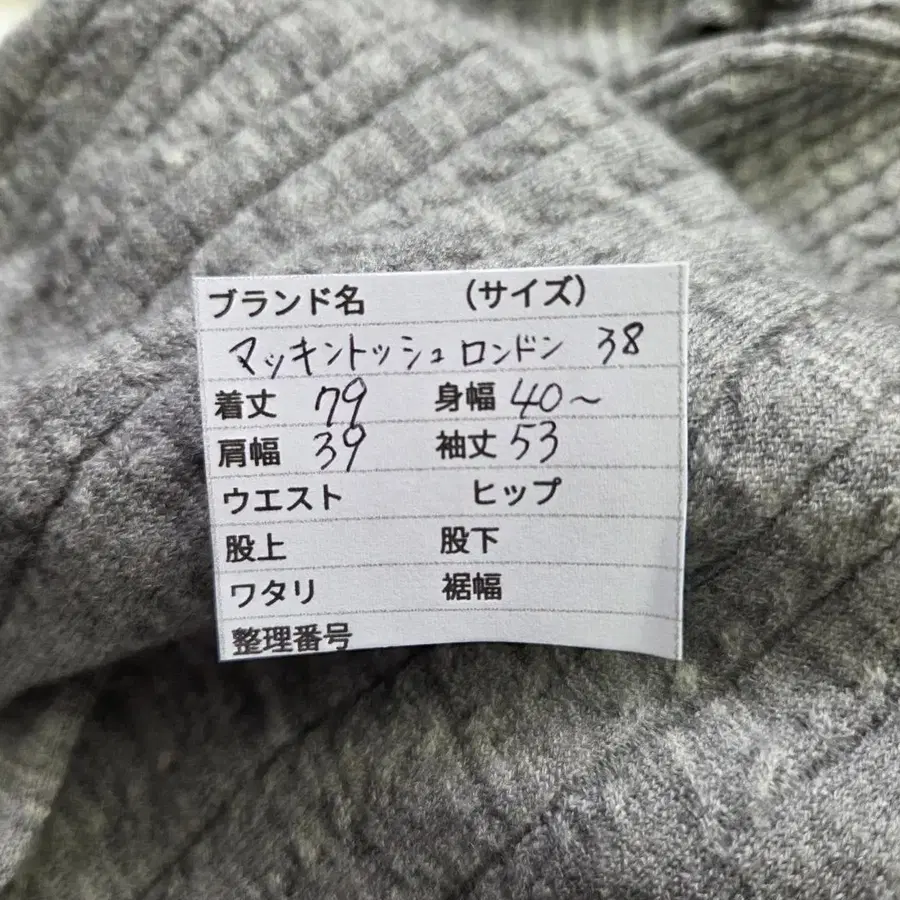 ブランド名 (サイズ)
マッキントッシュ ロンドン 38
着丈 79 身幅 40～
肩幅 39 袖丈 53
ウエスト ヒップ
股上 股下
ワタリ 裾幅
整理番号